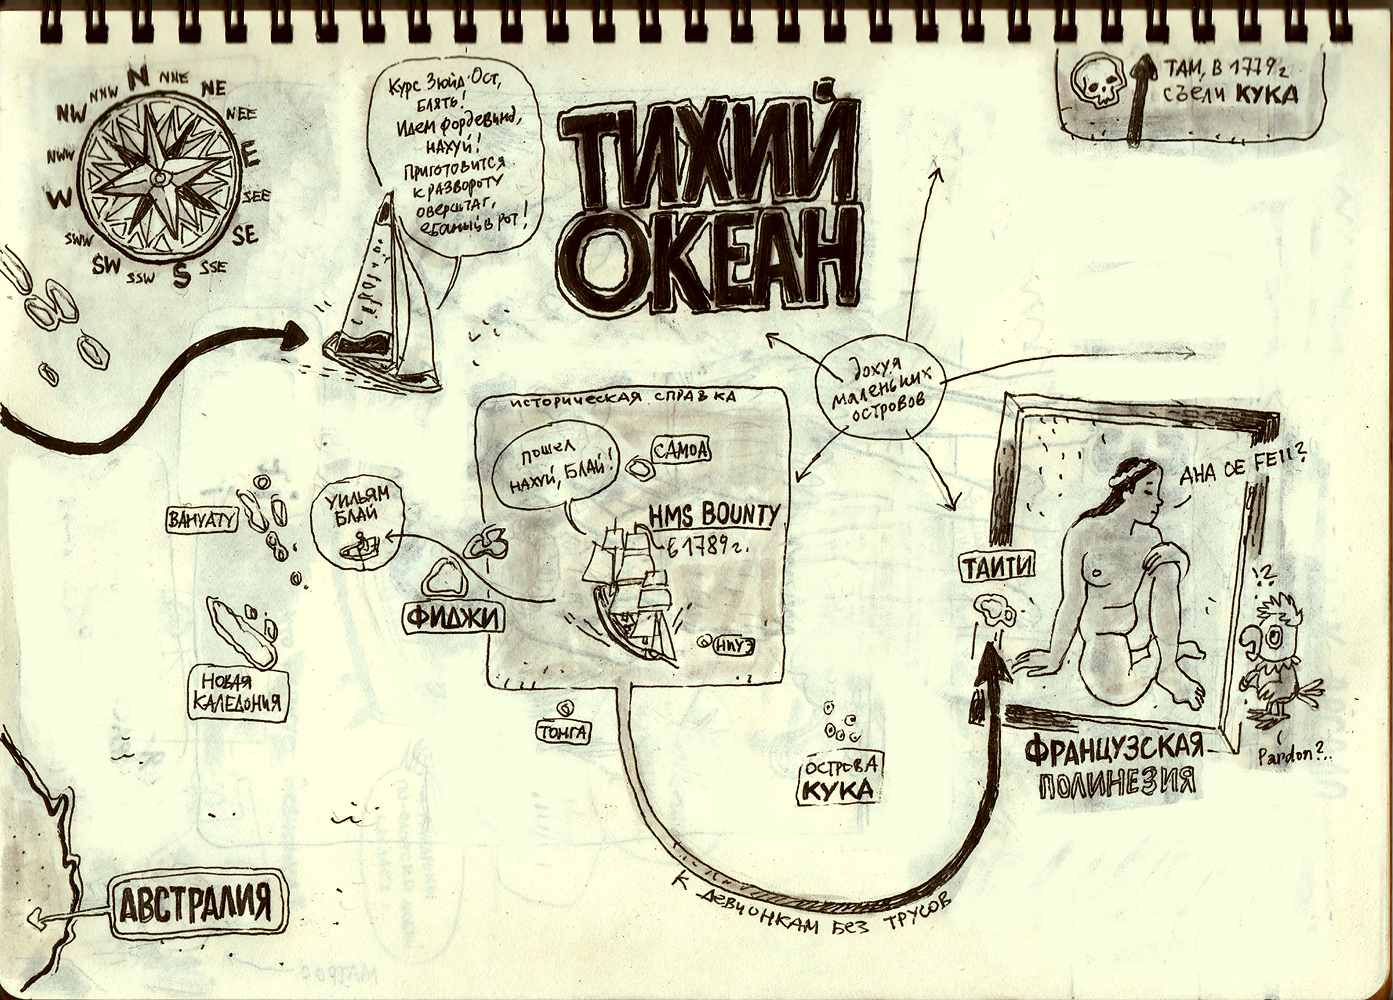 N
NNE
NE
NEE
E
SEE
SE
SSE
S
SSW
SW
SWW
W
NWW
NW
NNW
Курс Зюйд-Ост,
блять!
Идем фордевинд,
нахуй!
Приготовится
к развороту
оверштаг,
ебаный в рот!
ТИХИЙ
ОКЕАН
ТАМ, В 1779 г.
СЪЕЛИ КУКА
дохуя
маленьких
островов
ИСТОРИЧЕСКАЯ СПРАВКА
пошел
нахуй, Блай!
САМОА
HMS BOUNTY
в 1789 г.
НИУЭ
ВАНУАТУ
УИЛЬЯМ
БЛАЙ
ФИДЖИ
НОВАЯ
КАЛЕДОНИЯ
ТОНГА
ОСТРОВА
КУКА
ТАИТИ
АНА ОЕ FEII?
!?
Pardon?..
ФРАНЦУЗСКАЯ
ПОЛИНЕЗИЯ
К ДЕВЧОНКАМ БЕЗ ТРУСОВ
АВСТРАЛИЯ